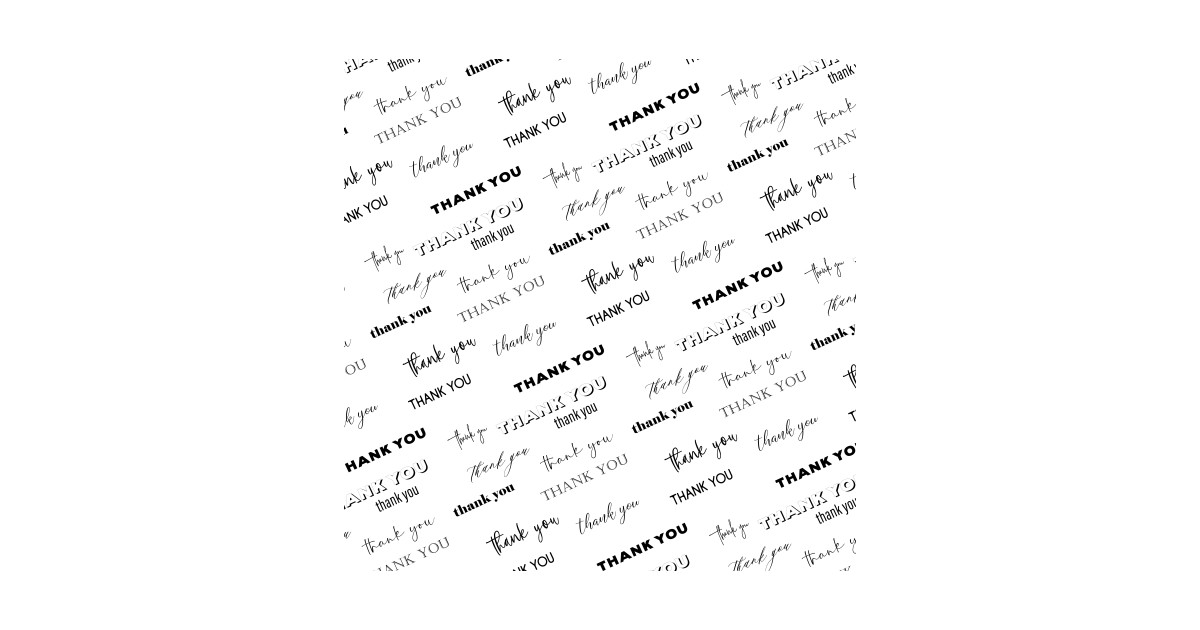 thank
thank you
THANK
thank
thank you
thank you
thank you
you
THANK YOU
THANK YOU
thank you
thank
THANK YOU
THANK YOU
THAN
thank you
thank you
thank you
thank you
you
THANK YOU
thank you
thank you
thank you
THANK YOU
thank you
THANK YOU
THANK YOU
THANK YOU
thank you
thank you
thank you
thank you
thank you
thank you
thank you
thank you
THANK YOU
THANK YOU
THANK YOU
THANK YOU
thank you
thank you
thank you
thank you
thank you
thank you
OU
THANK YOU
THANK YOU
thank you
thank you
thank you
THANK YOU
THANK YOU
THANK YOU
thank you
you
thank you
thank you
thank you
thank you
HANK YOU
THANK YOU
THANK YOU
thank you
thank you
thank you
thank you
thank you
THANK YOU
thank you
thank you
THANK YOU
THANK YOU
THANK YOU
thank you
thank you
thank you
THANK YOU